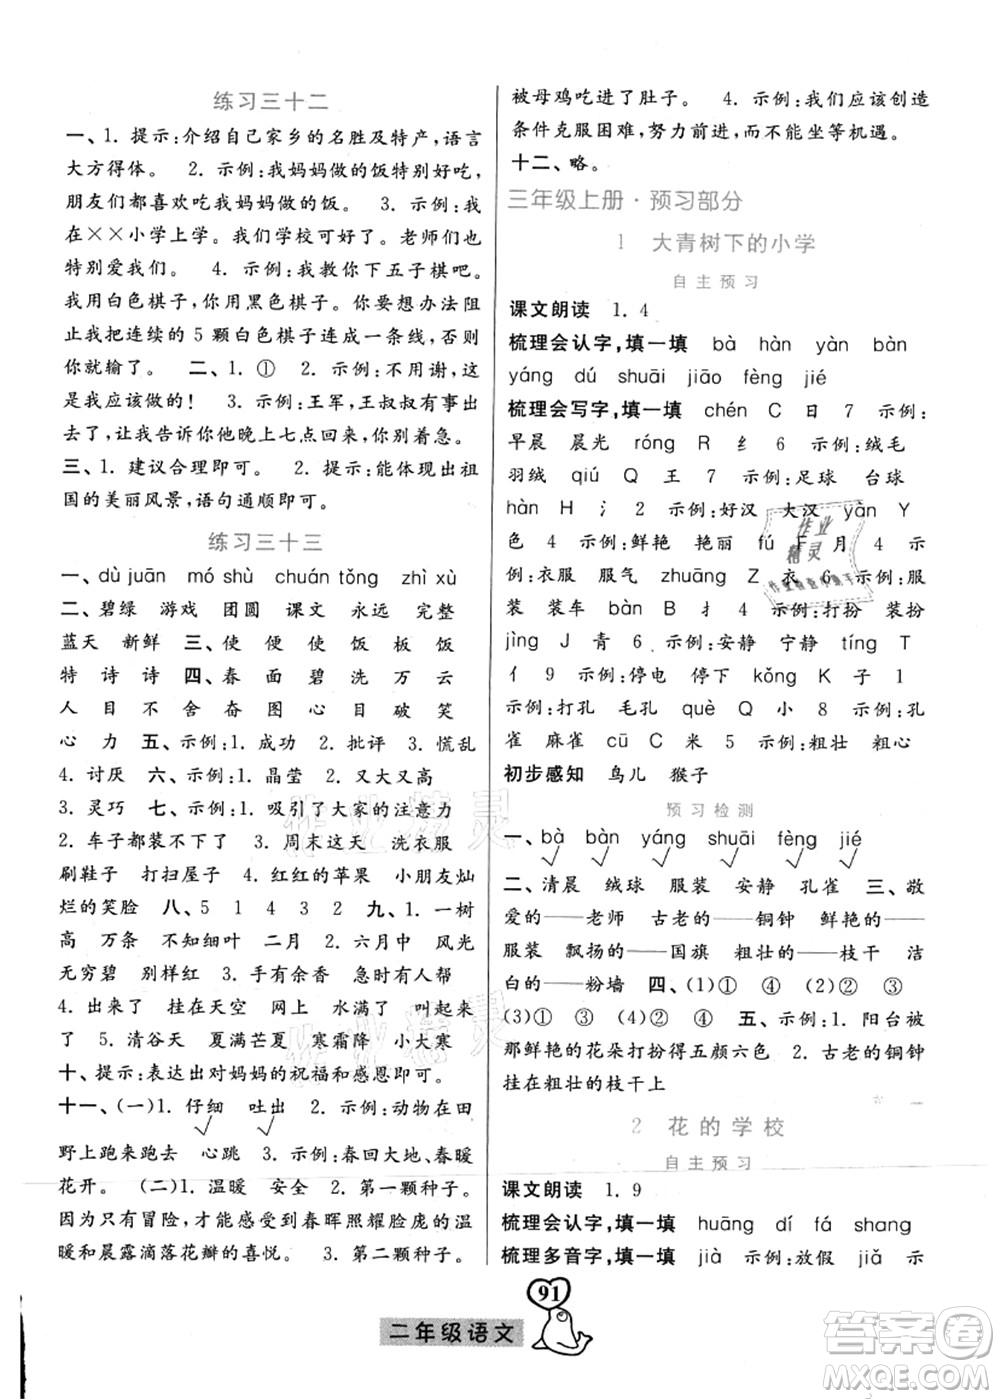 练习三十二
一、1. 提示:介绍自己家乡的名胜及特产,语言
大方得体。 2. 示例:我妈妈做的饭特别好吃,
朋友们都喜欢吃我妈妈做的饭。 3. 示例:我
在××小学上学。我们学校可好了。老师们也
特别爱我们。 4. 示例:我教你下五子棋吧。
我用白色棋子,你用黑色棋子。你要想办法阻
止我把连续的 5 颗白色棋子连成一条线,否则
你就输了。 二、1. ① 2. 示例:不用谢,这
是我应该做的! 3. 示例:王军,王叔叔有事出
去了,让我告诉你他晚上七点回来,你别着急。
三、1. 建议合理即可。 2. 提示:能体现出祖
国的美丽风景,语句通顺即可。
练习三十三
一、dù juān mó shù chuán tǒng zhì xù
二、碧绿 游戏 团圆 课文 永远 完整
蓝天 新鲜 三、使 便 使 饭 板 饭
特 诗 诗 四、春 面 碧 洗 万 云
人 目 不 舍 奋 图 心 目 破 笑
心 力 五、示例:1. 成功 2. 批评 3. 慌乱
4. 讨厌 六、示例:1. 晶莹 2. 又大又高
3. 灵巧 七、示例:1. 吸引了大家的注意力
2. 车子都装不下了 3. 周末这天 洗衣服
刷鞋子 打扫屋子 4. 红红的苹果 小朋友灿
烂的笑脸 八、5 1 4 3 2 九、1. 一树
高 万条 不知细叶 二月 2. 六月中 风光
无穷碧 别样红 3. 手有余香 急时有人帮
4. 出来了 挂在天空 网上 水满了 叫起来
了 5. 清谷天 夏满芒夏 寒霜降 小大寒
十、提示:表达出对妈妈的祝福和感恩即可。
十一、(一)1. 仔细 吐出 2. 示例:动物在田
野上快乐奔跑 心跳 3. 示例:春回大地、春暖
花开。 (二)1. 温暖 安全 2. 第一颗种子。
因为只有冒险,才能感受到春晖照耀脸庞的温
暖和晨露滴落花瓣的喜悦。 3. 第二颗种子。
被母鸡吃进了肚子。 4. 示例:我们应该创造
条件克服困难,努力前进,而不能坐等机遇。
十二、略。
三年级上册·预习部分
1 大青树下的小学
自主预习
课文朗读 1. 4
梳理会认字,填一填 bà hàn yàn bàn
yáng dú shuāi jiāo fèng jié
梳理会写字,填一填 chén C 日 7 示例:
早晨 晨光 róng R 纟 6 示例:绒毛
羽绒 qiú Q 王 7 示例:足球 台球
hàn H 氵 2 示例:好汉 大汉 yàn Y
色 4 示例:鲜艳 艳丽 fú F 月 4 示
例:衣服 服气 zhuāng Z 衣 6 示例:服
装 装车 bàn B 扌 4 示例:打扮 扮演
jìng J 青 6 示例:安静 宁静 tíng T
亻 9 示例:停电 停下 kǒng K 子 1
示例:打孔 毛孔 què Q 小 8 示例:孔
雀 麻雀 cū C 米 5 示例:粗壮 粗心
初步感知 鸟儿 猴子
预习检测
一、bà bàn yáng shuāi fèng jié
√ √ √ √
二、清晨 绒球 服装 安静 孔雀 三、敬
爱的——老师 古老的——铜钟 鲜艳的——
服装 飘扬的——国旗 粗壮的——枝干 洁
白的——粉墙 四、(1)① ④ (2)① ③
(3)① ② (4)② ① 五、示例:1. 阳台被
那鲜艳的花朵打扮得五颜六色 2. 古老的铜钟
挂在粗壮的枝干上
2 花的学校
自主预习
课文朗读 1. 9
梳理会认字,填一填 huāng dí fá shang
梳理多音字,填一填 jià 示例:放假 jiǎ 示
91
二年级语文
答案圈
MXQE.COM
作业精灵